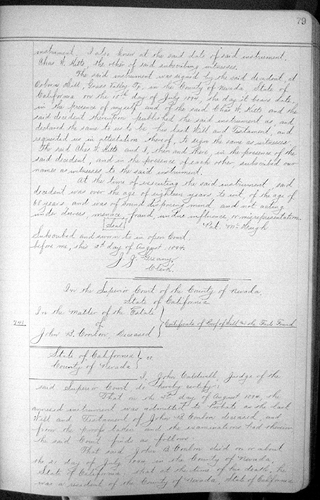 79
instrument. I also knew at the said date of said instrument,
Chas. F. Kitts, the other of said subscribing witnesses.
The said instrument was signed by the said decedent, at
Grass Valley, in the County of Nevada, State of
California on the day of July the day it bears date,
in the presence of myself and of the said Chas. F. Kitts and the
said decedent thereupon published the said instrument as, and
declared the same to us to be his last Will and Testament, and
requested us in attestation thereof, to sign the same as witnesses.
The said Chas. F. Kitts and I, then and there in the presence of the
said decedent, and in the presence of each other subscribed our
names as witnesses to the said instrument.
At the time of executing the said instrument, said
decedent was over the age of eighteen years, to wit, of the age of
61 years, and was of sound disposing mind, and not acting
under duress, menace, fraud, undue influence or misrepresentation.
Seal
Subscribed and sworn to in open Court
before me, this day of August
Clerk
In the Superior Court of the County of Nevada
State of California
In the Matter of the Estate
of
John B. Deceased
Certificate of Proof of Will and the Facts Found
State of California
County of Nevada
ss
I, John Caldwell, Judge of the
said Superior Court do hereby certify:
That on the day of August the
annexed instrument was admitted to Probate as the last
Will and Testament of John B. deceased, and
from the proofs taken and the examinations had therein
the said Court finds as follows:
That said John B. died on or about
the day of July in the County of Nevada,
State of California. That at the time of his death, he
was a resident of the County of Nevada, State of California